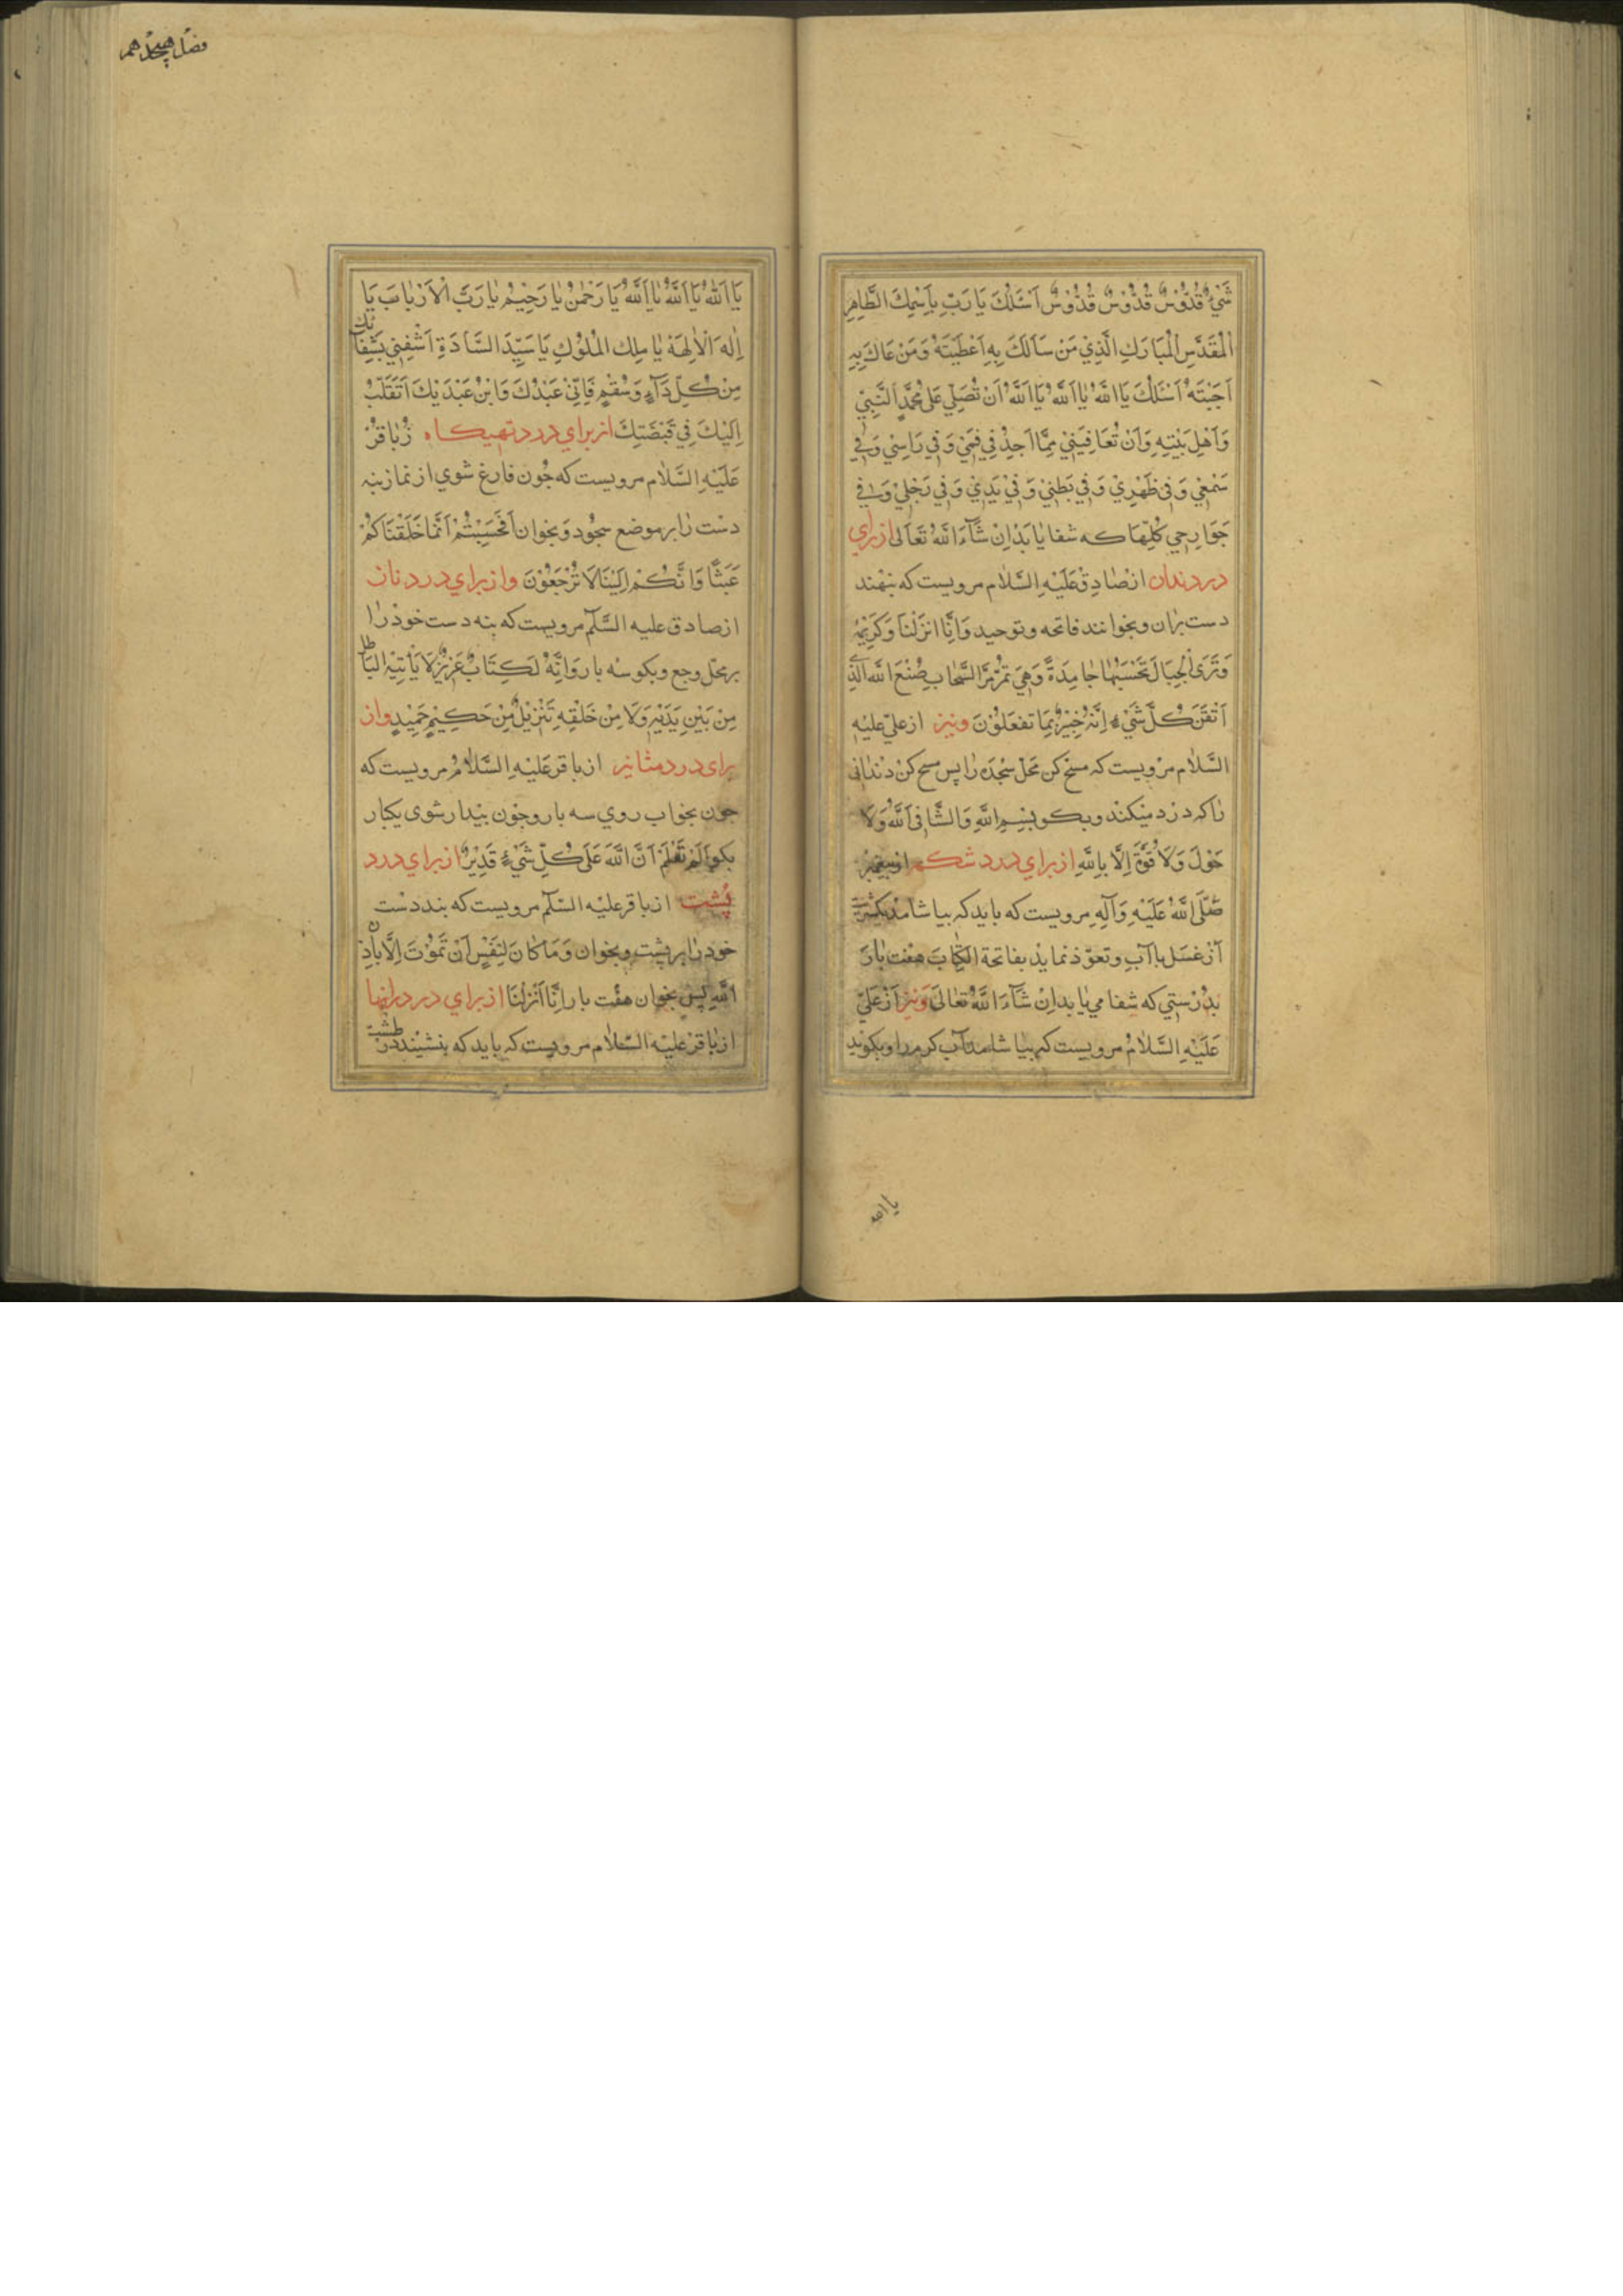 شَيْءٌ قُدُّوْسٌ قُدُّوْسٌ قُدُّوْسٌ اَسْئَلُكَ يَا رَبِّ بِاَسْمِكَ الطَّاهِرِ
الْمُقَدَّسِ الْمُبَارَكِ الَّذِيْ مَنْ سَاَلَكَ بِهِ اَعْطَيْتَهُ وَمَنْ دَعَاكَ بِهِ
اَجَبْتَهُ اَسْئَلُكَ يَا اَللَّهُ يَا اَللَّهُ يَا اَللَّهُ اَنْ تُصَلِّيَ عَلى مُحَمَّدٍ النَّبِيِّ
وَاَهْلِ بَيْتِهِ وَاَنْ تُعَافِيَنِيْ مِمَّا اَجِدُ فِي فَمِيْ وَفِي رَاسِيْ وَفِي
سَمْعِيْ وَفِي ظَهْرِيْ وَفِي بَطْنِيْ وَفِيْ يَدِيْ وَفِي رِجْلِيْ وَفي
جَوَارِحِي كُلِّهَا كه شفا يابد اِنْ شَآءَ اللَّهُ تَعَالى از براي
درد دندان از صَادِقْ عَلَيْهِ السَّلام مرويست كه بنهند
دست بران وبخوانند فاتحه وتوحيد وَاِنَّا انْزَلْنَا وكريمهٔ
وَتَرَى الْجِبَالَ تَحْسَبُهَا جَامِدَةً وَهِيَ تَمُرُّ مَرَّ السَّحَابِ صُنْعَ اللهِ الَّذِي
اَتْقَنَ كُلَّ شَيْءٍ اِنَّهُ خَبِيْرٌ بِمَا تفعَلُوْنَ ونيز از علي عليه
السَّلام مرويست كه مسح كن محل سجده را پس مسح كن دنداني
را كه درد ميكند وبكو بِسْمِ اللَّهِ وَالشَّافِي اَللَّهُ وَلَا
حَوْلَ وَلَا قُوَّةَ اِلَّا بِاللَّهِ از براي درد شكم از پيغمبر
صَلَّى اللَّهُ عَلَيْهِ وَآلِهِ مرويست كه بايد كه بياشامد يكشربت
از عَسَل با آب وتعوّذ نمايد بفاتحة الكِتَابَ هفت بار
بدرستي كه شفا مي يابد اِنْ شَآءَ اللَّهُ تَعَالَى وَنيز از عَلي
عَلَيْهِ السَّلامُ مرويست كه بياشامد آب كرم را وبكويد
يا الله
فصل هيجدهم
يَا اَللَّهُ يَا اَللَّهُ يَا اَللَّهُ يَا رَحْمٰنُ يَا رَحِيْمُ يَا رَبَّ الْاَرْبَابِ يَا
اِلٰهَ الْاٰلِهَةِ يَا مَلِكَ الْمُلُوْكِ يَا سَيِّدَ السَّادَةِ اَشْفِنِي بِشِفَائِكَ
مِنْ كُلِّ دَآءٍ وَسُقْمٍ فَاِنِّيْ عَبْدُكَ وَابْنُ عَبْدَيْكَ اَتَقَلَّبُ
اِلَيْكَ فِي قَبْضَتِكَ از براي درد تهيكاه ز باقرْ
عَلَيْهِ السَّلَام مرويست كه چون فارغ شوي از نماز بنه
دست را بر موضع سجود وبخوان اَفَحَسِبْتُمْ اَنَّمَا خَلَقْنَاكُمْ
عَبَثًا وَاَنَّكُمْ اِلَيْنَا لَا تُرْجَعُوْنَ واز براي درد ناف
از صادق عليه السَّلَم مرويست كه بنه دست خود را
بر محل وجع وبكو سه بار وَاِنَّهُ لَكِتَابٌ عَزِيْزٌ لَا يَاْتِيْهِ الْبَاطِلُ
مِنْ بَيْنِ يَدَيْهِ وَلَا مِنْ خَلْفِهِ تَنْزِيْلٌ مِنْ حَكِيْمٍ حَمِيْدٍ واز
براى درد مثانه از باقر عَلَيْهِ السَّلَامُ مرويست كه
چون بخواب روي سه بار وچون بيدار شوى يكبار
بكو اَلَمْ تَعْلَمْ اَنَّ اللَّهَ عَلَى كُلِّ شَيْءٍ قَدِيْرٌ از براي درد
پُشت از باقر عليه السَّلَم مرويست كه بنه دست
خود را بر پشت وبخوان وَمَا كَانَ لِنَفْسٍ اَنْ تَمُوْتَ اِلَّا بِاِذْنِ
اللَّهِ پس بخوان هفت بار اِنَّا اَنْزَلْنَا از براي درد رانها
از باقر عليه السَّلَام مرويست كه بايد كه بنشيند در طشت